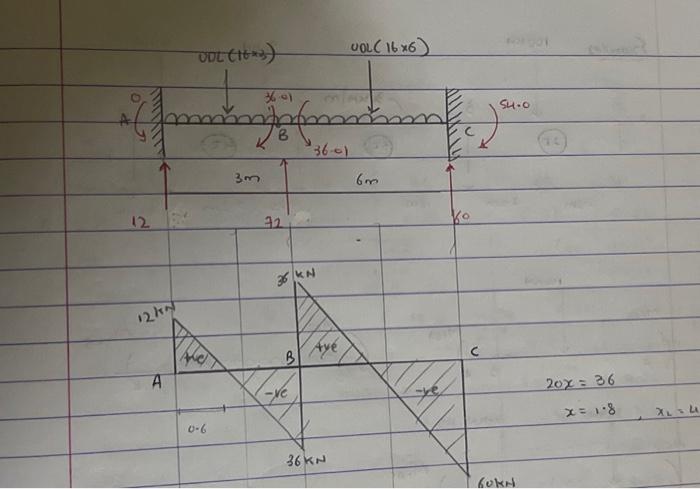 UDL(16×3) UDL(16×6)
0 36.01 54.0
A B C
36.01
3m 6m
12 72 60
36 KN
12KN
+ve +ve
A B C
-ve -ve
20x = 36
0.6
x = 1.8 ,
36KN
60KN